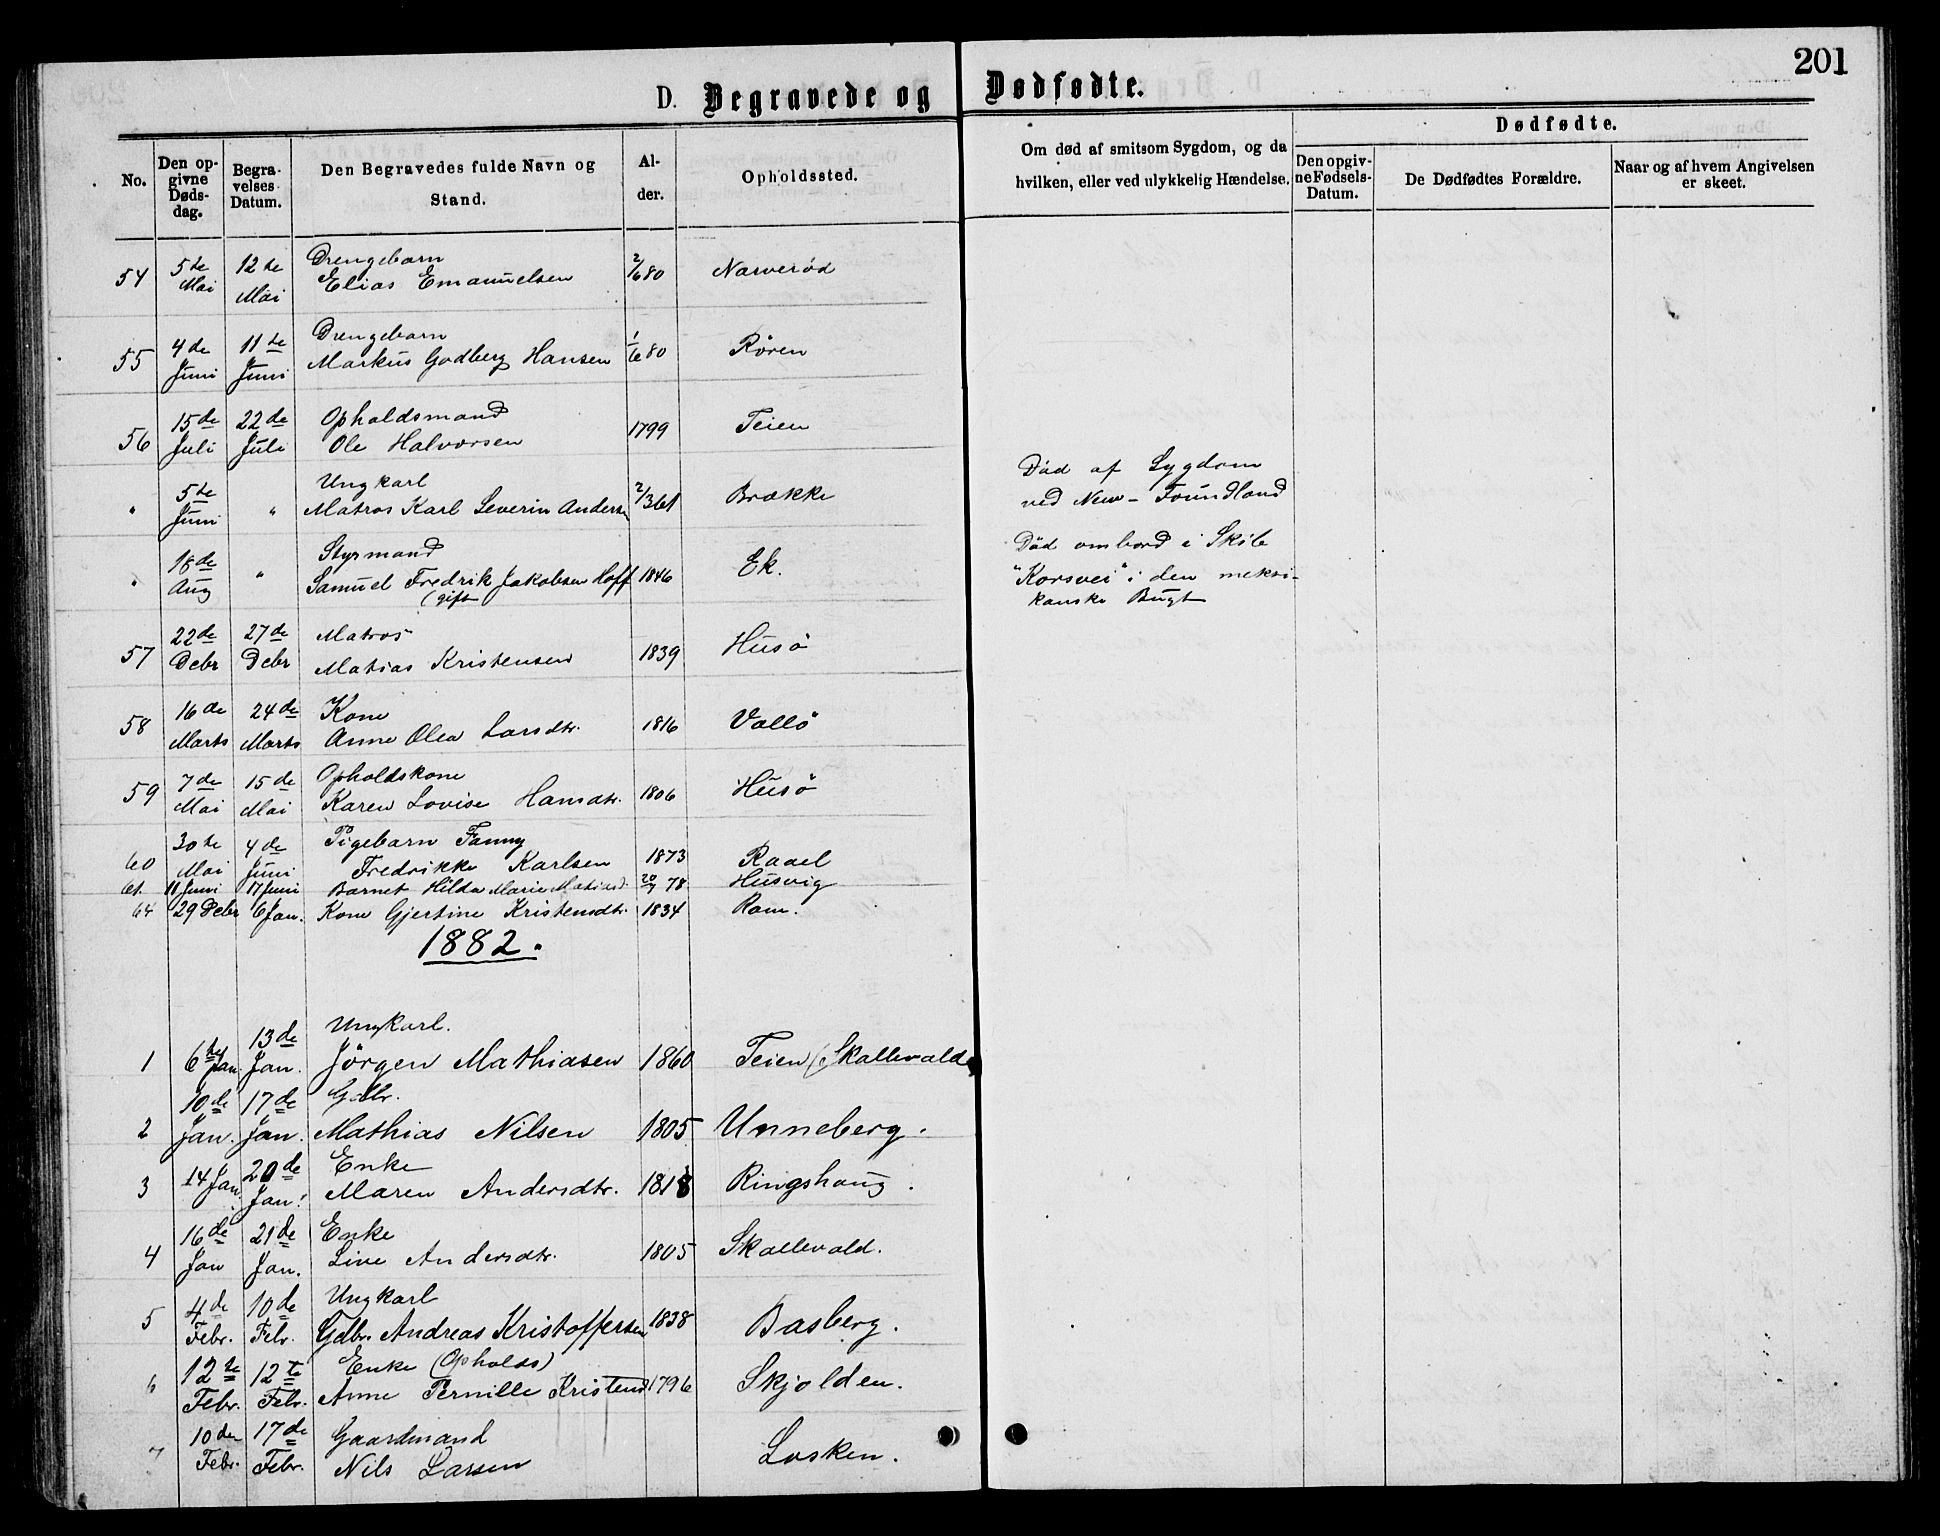 201
D. Begravede og Dødfødte.
No.
Den opgivne Dødsdag.
Begravelses Datum.
Den Begravedes fulde Navn og Stand.
Alder.
Opholdssted.
Om død af smitsom Sygdom, og da hvilken, eller ved ulykkelig Hændelse.
Dødfødte.
Den opgivne Fødsels-Datum.
De Dødfødtes Forældre.
Naar og af hvem Angivelsen er skeet.
54 5te Mai 12te Mai Drengebarn Elias Emanuelsen 2/6 80 Narverød
55 4de Juni 11te Juni Drengebarn Markus Godberg Hansen 1/6 80 Røren
56 15de Juli 22de Juli Opholdsmand Ole Halvorsen 1799 Teien
" 5te Juni " Ungkarl Matros Karl Severin Andersen 2/3 61 Brække Död af Sygdom ved New-Foundland
" 18de Aug " Styrmand Samuel Fredrik Jakobsen Hoff (gift 1846 Ek. Död ombord i Skib "Korsvei" i den meksikanske Bugt
57 22de Debr 27de Debr Matros Matias Kristensen 1839 Husö
58 16de Marts 24de Marts Kone Anne Olea Larsdtr. 1816 Vallö
59 7de Mai 15de Mai Opholdskone Karen Lovise Hansdtr. 1806 Husö
60 30te Mai 4de Juni Pigebarn Fanny Fredrikke Karlsen 1873 Raael
61. 11 Juni 17 Juni Barnet Hilda Marie Matiasd. 20/7 78 Husvig
64 29 Debr 6 Jan. Kone Gjertine Kristensdtr. 1834 Ram.
1882.
1 6te Jan. 13de Jan. Ungkarl. Jörgen Mathiasen 1860 Teien (Skallevald)
2 10de Jan. 17de Jan. Gdbr. Mathias Nilsen 1805 Unneberg.
3 14 Jan. 20de Jan. Enke Maren Andersdtr. 1818 Ringshaug.
4 16de Jan 21de Jan. Enke Live Andersdtr. 1805 Skallevald.
5 4de Febr. 10de Febr. Ungkarl Gdbr. Andreas Kristoffersen 1838 Basberg.
6 12te Febr. 12te Febr. Enke (Opholds) Anne Pernille Kristensd 1796 Skjolden.
7 10de Febr. 17de Febr. Gaardmand Nils Larsen Losken.